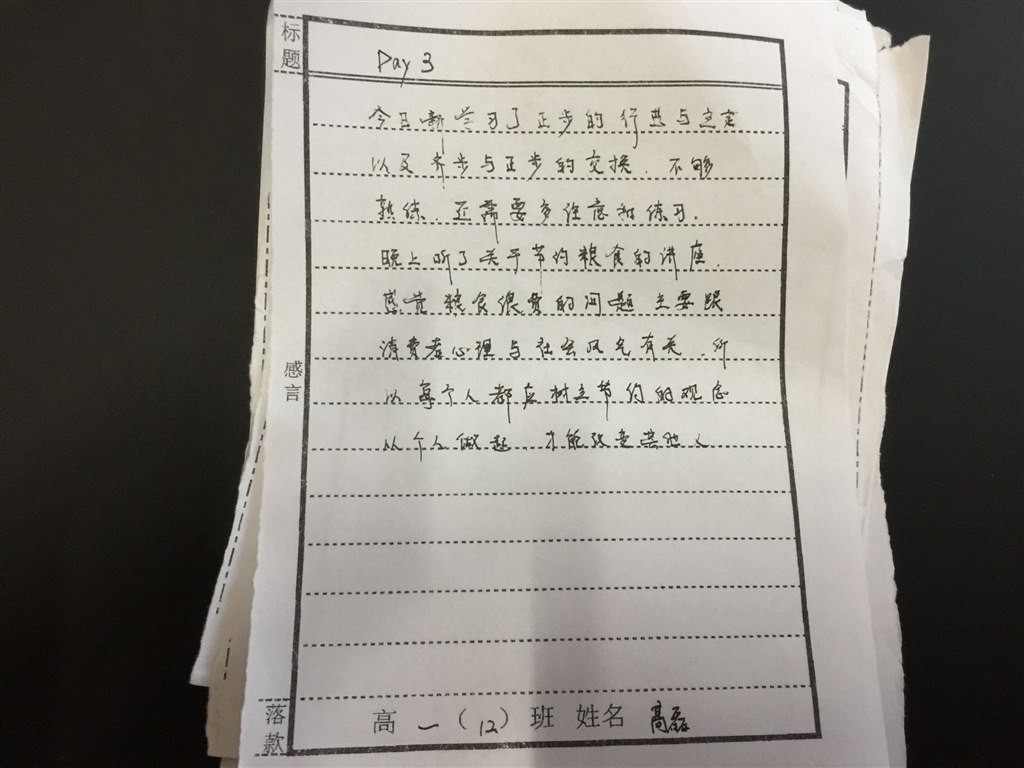 标题
Day 3
今日新学习了正步的行进与立定
以及齐步与正步的交换.不够
熟练.还需要多注意和练习.
晚上听了关于节约粮食的讲座.
感觉粮食浪费的问题主要跟
消费者心理与社会风气有关.所
以每个人都应树立节约的观念
从个人做起.才能改变其他人
感言
落款
高一(12)班 姓名 高磊